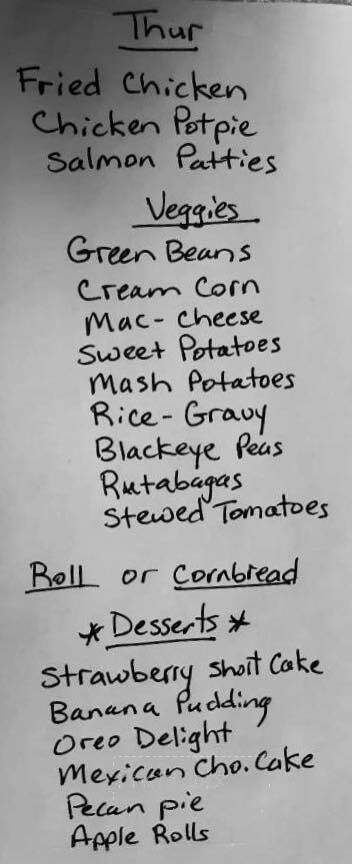 Thur
Fried Chicken
Chicken Potpie
Salmon Patties
Veggies
Green Beans
Cream Corn
Mac-Cheese
Sweet Potatoes
Mash Potatoes
Rice-Gravy
Blackeye Peas
Rutabagas
Stewed Tomatoes
Roll or Cornbread
*Desserts*
Strawberry Short Cake
Banana Pudding
Oreo Delight
Mexican Cho. Cake
Pecan pie
Apple Rolls